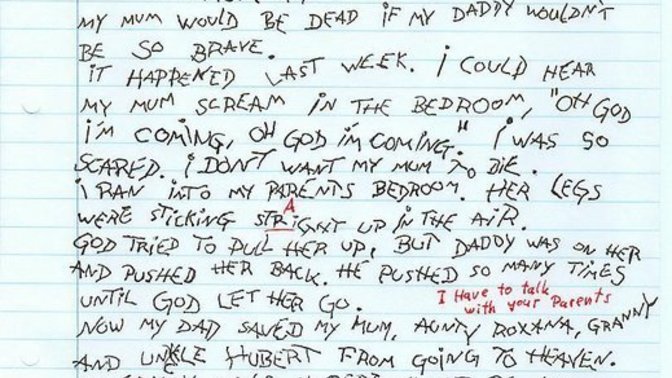 MY MUM WOULD BE DEAD IF MY DADDY WOULDN'T
BE SO BRAVE.
IT HAPPENED LAST WEEK. I COULD HEAR
MY MUM SCREAM IN THE BEDROOM, "OH GOD
I'M COMING, OH GOD I'M COMING." I WAS SO
SCARED. I DON'T WANT MY MUM TO DIE.
I RAN INTO MY PARENTS BEDROOM. HER LEGS
A
WERE STICKING STRIGHT UP IN THE AIR.
GOD TRIED TO PULL HER UP, BUT DADDY WAS ON HER
AND PUSHED HER BACK. HE PUSHED SO MANY TIMES
I Have to talk
UNTIL GOD LET HER GO.
with your Parents
NOW MY DAD SAVED MY MUM, AUNTY ROXANA, GRANNY
AND UNKLE HUBERT FROM GOING TO HEAVEN.